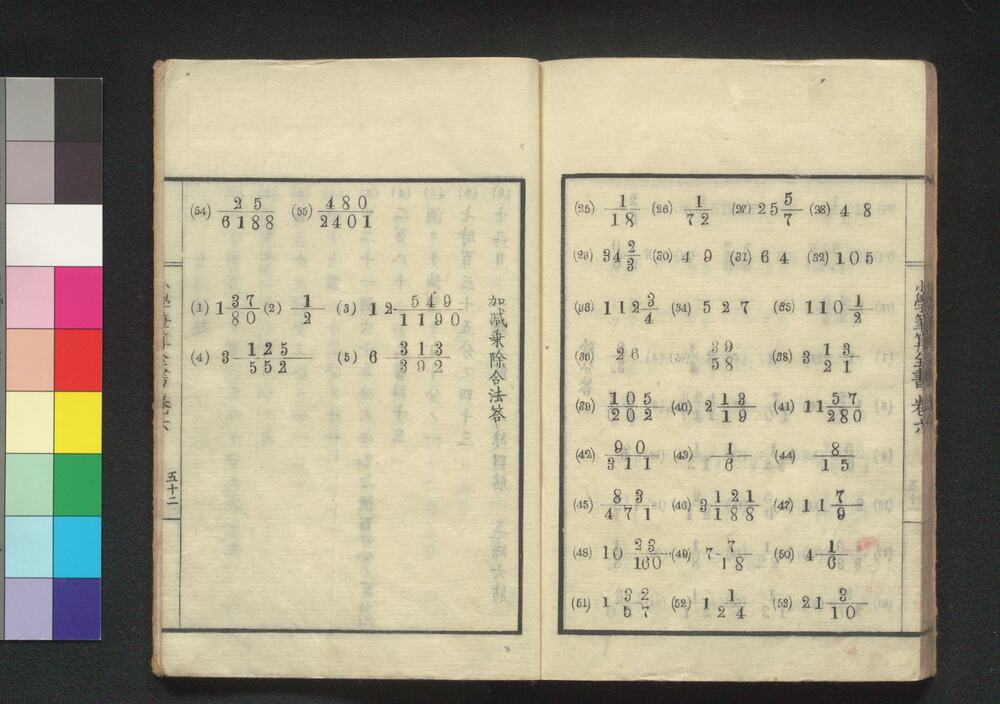 (25) 1/18 (26) 1/72 (27) 25 5/7 (28) 48
(29) 34 2/3 (30) 49 (31) 64 (32) 105
(33) 112 3/4 (34) 527 (35) 110 1/2
(36) 26 (37) 39/58 (38) 3 13/21
(39) 105/202 (40) 2 13/19 (41) 11 57/280
(42) 90/311 (43) 1/6 (44) 8/15
(45) 83/471 (46) 3 121/188 (47) 11 7/9
(48) 10 23/160 (49) 7 7/18 (50) 4 1/6
(51) 1 32/57 (52) 1 1/24 (53) 21 3/10
小學筆算全書 卷六
(54) 25/6188 (55) 480/2401
加減乗除合法答
(1) 1 37/80 (2) 1/2 (3) 12 549/1190
(4) 3 125/552 (5) 6 313/392
五十二